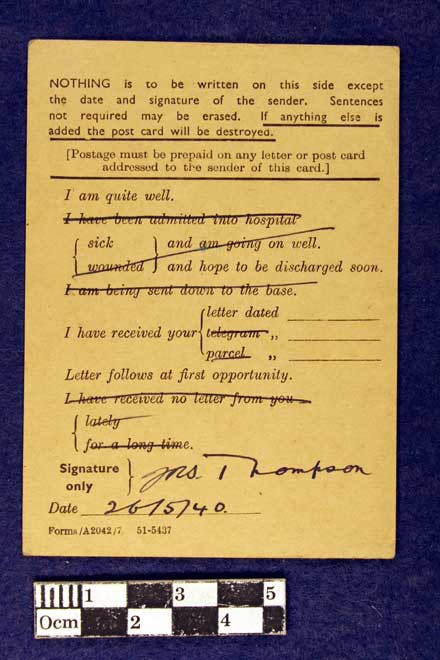 NOTHING is to be written on this side except
the date and signature of the sender. Sentences
not required may be erased. If anything else is
added the post card will be destroyed.
[Postage must be prepaid on any letter or post card
addressed to the sender of this card.]
I am quite well.
I have been admitted into hospital
sick
wounded
and am going on well.
and hope to be discharged soon.
I am being sent down to the base.
I have received your
letter dated
telegram „
parcel „
Letter follows at first opportunity.
I have received no letter from you
lately
for a long time.
Signature
only
Thompson
Date 26/5/40.
Forms/A2042/7 51-5437
1 3 5
0cm 2 4